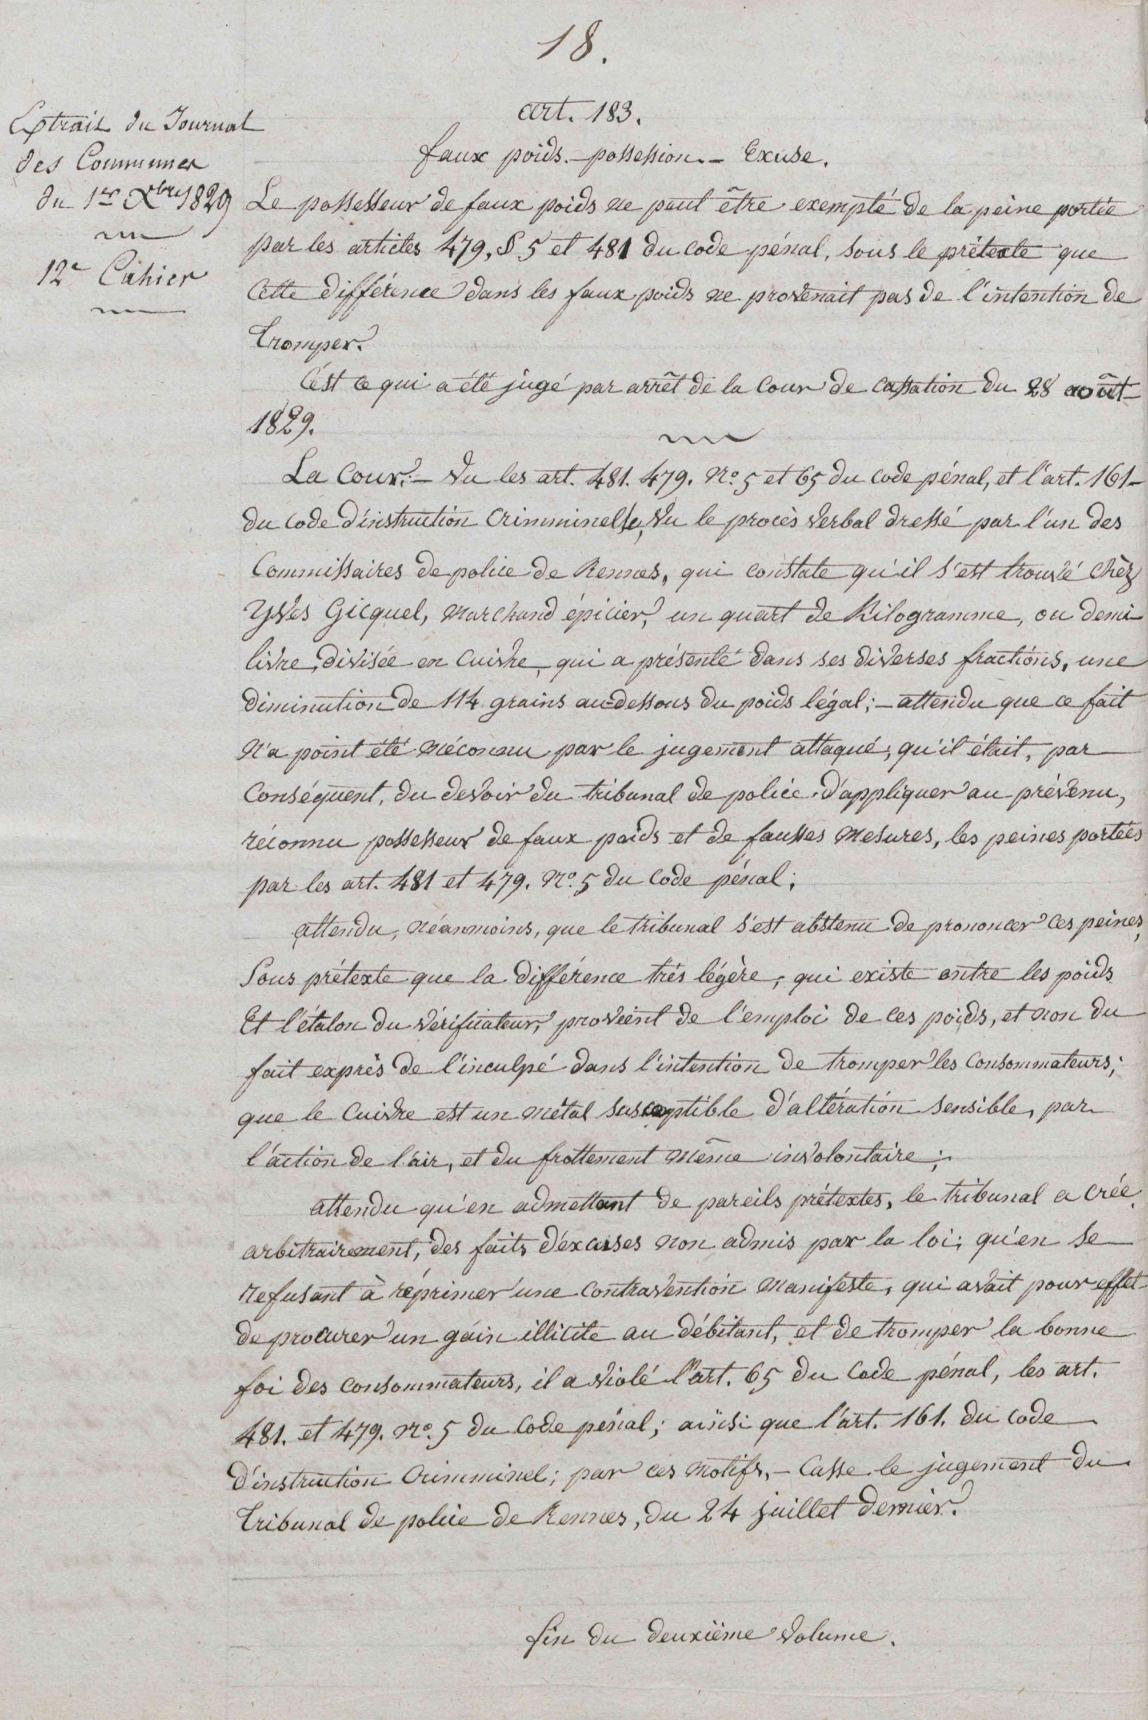 18.
Extrait du Journal
des Communes
du 1er Xbre 1829
12e Cahier
art. 183.
faux poids. - possession. - Excuse.
Le possesseur de faux poids ne peut être exempté de la peine portée
par les articles 479, § 5 et 481 du code pénal, sous le prétexte que
cette différence dans les faux poids ne provenait pas de l'intention de
tromper.
C'est ce qui a été jugé par arrêt de la Cour de cassation du 28 août
1829.
La Cour. - Vu les art. 481. 479. No. 5 et 65 du code pénal, et l'art. 161
du code d'instruction criminelle, Vu le procès verbal dressé par l'un des
Commissaires de police de Rennes, qui constate qu'il s'est trouvé chèz
Yves Gicquel, Marchand épicier, un quart de Kilogramme, ou demi
livre, divisée en cuivre, qui a présenté dans ses diverses fractions, une
diminution de 114 grains au-dessous du poids légal; - attendu que ce fait
n'a point été méconnu par le jugement attaqué; qu'il était, par
conséquent, du devoir du tribunal de police d'appliquer au prévenu,
réconnu possesseur de faux poids et de fausses mesures, les peines portées
par les art. 481 et 479. No. 5 du code pénal;
attendu, néanmoins, que le tribunal s'est abstenu de prononcer ces peines,
sous prétexte que la différence très légère, qui existe entre les poids
et l'étalon du vérificateur, provient de l'emploi de ces poids, et non du
fait exprès de l'inculpé dans l'intention de tromper les consommateurs;
que le cuivre est un métal susceptible d'altération sensible, par
l'action de l'air, et du frottement même involontaire;
attendu qu'en admettant de pareils prétextes, le tribunal a créé
arbitrairement, des faits d'excuses non admis par la loi; qu'en se
refusant à réprimer une contravention manifeste, qui avait pour effet
de procurer un gain illicite au débitant, et de tromper la bonne
foi des consommateurs, il a violé l'art. 65 du code pénal, les art.
481. et 479. No. 5 du code pénal; ainsi que l'art. 161. du code
d'instruction Criminel; par ces motifs, - Casse le jugement du
Tribunal de police de Rennes, du 24 juillet dernier.
fin du deuxième volume.